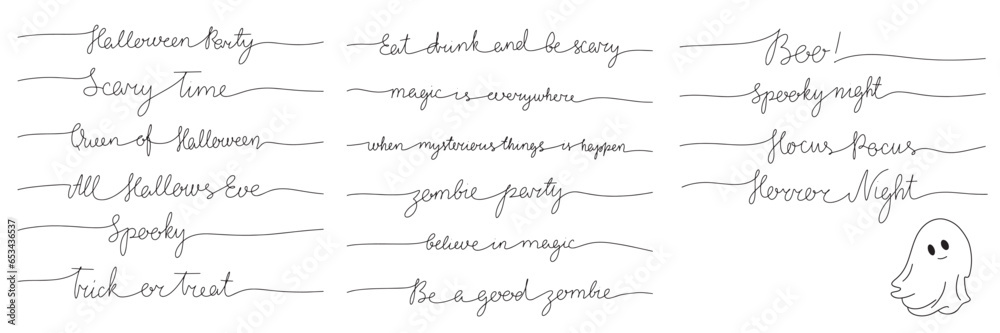 Halloween Party
Scary Time
Queen of Halloween
All Hallows Eve
Spooky
trick or treat
Eat drink and be scary
magic is everywhere
when mysterious things is happen
zombie party
believe in magic
Be a good zombie
Boo!
Spooky night
Hocus Pocus
Horror Night
Adobe Stock | #653436537